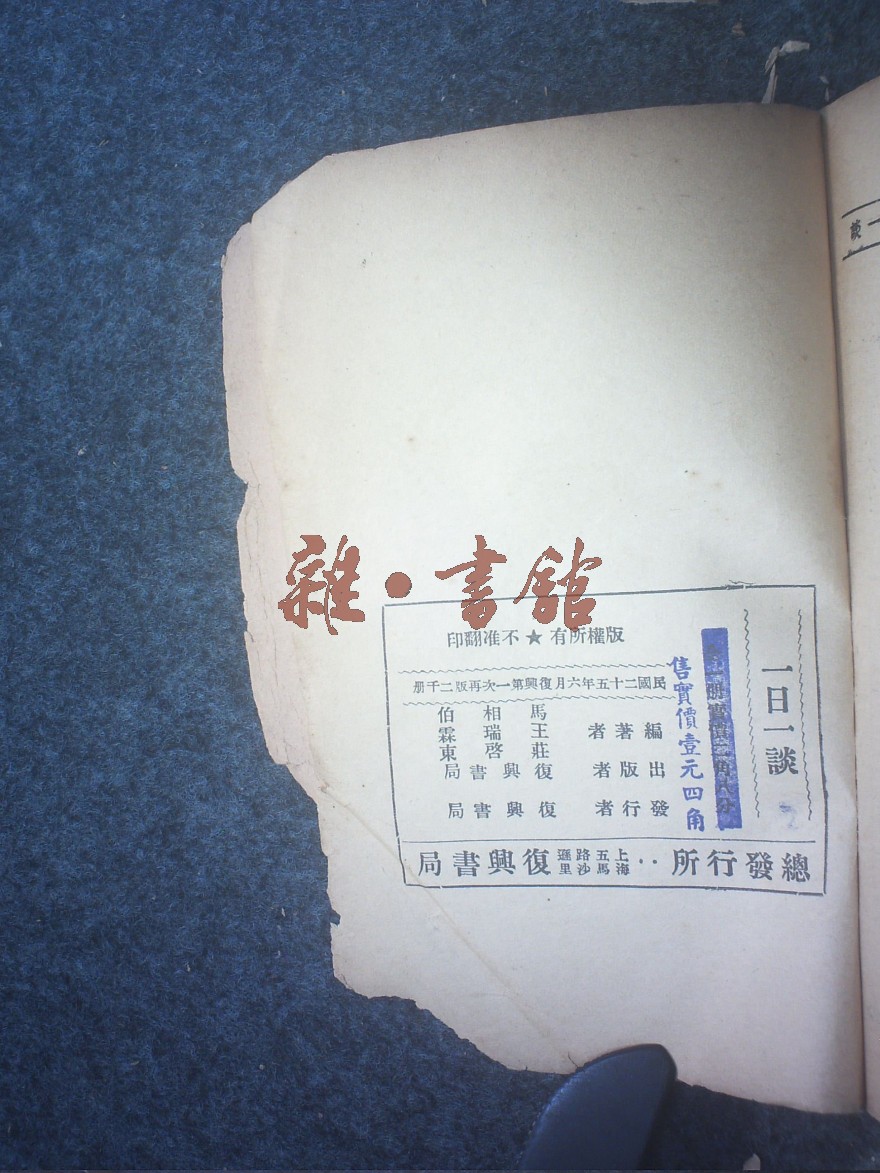 一日一談
售實價壹元四角
版權所有★不准翻印
民國二十五年六月復興第一次再版二千册
編著者 馬相伯
王瑞霖
莊啓東
出版者 復興書局
發行者 復興書局
總發行所：上海五馬路沙遜里 復興書局
雜·書館
一談